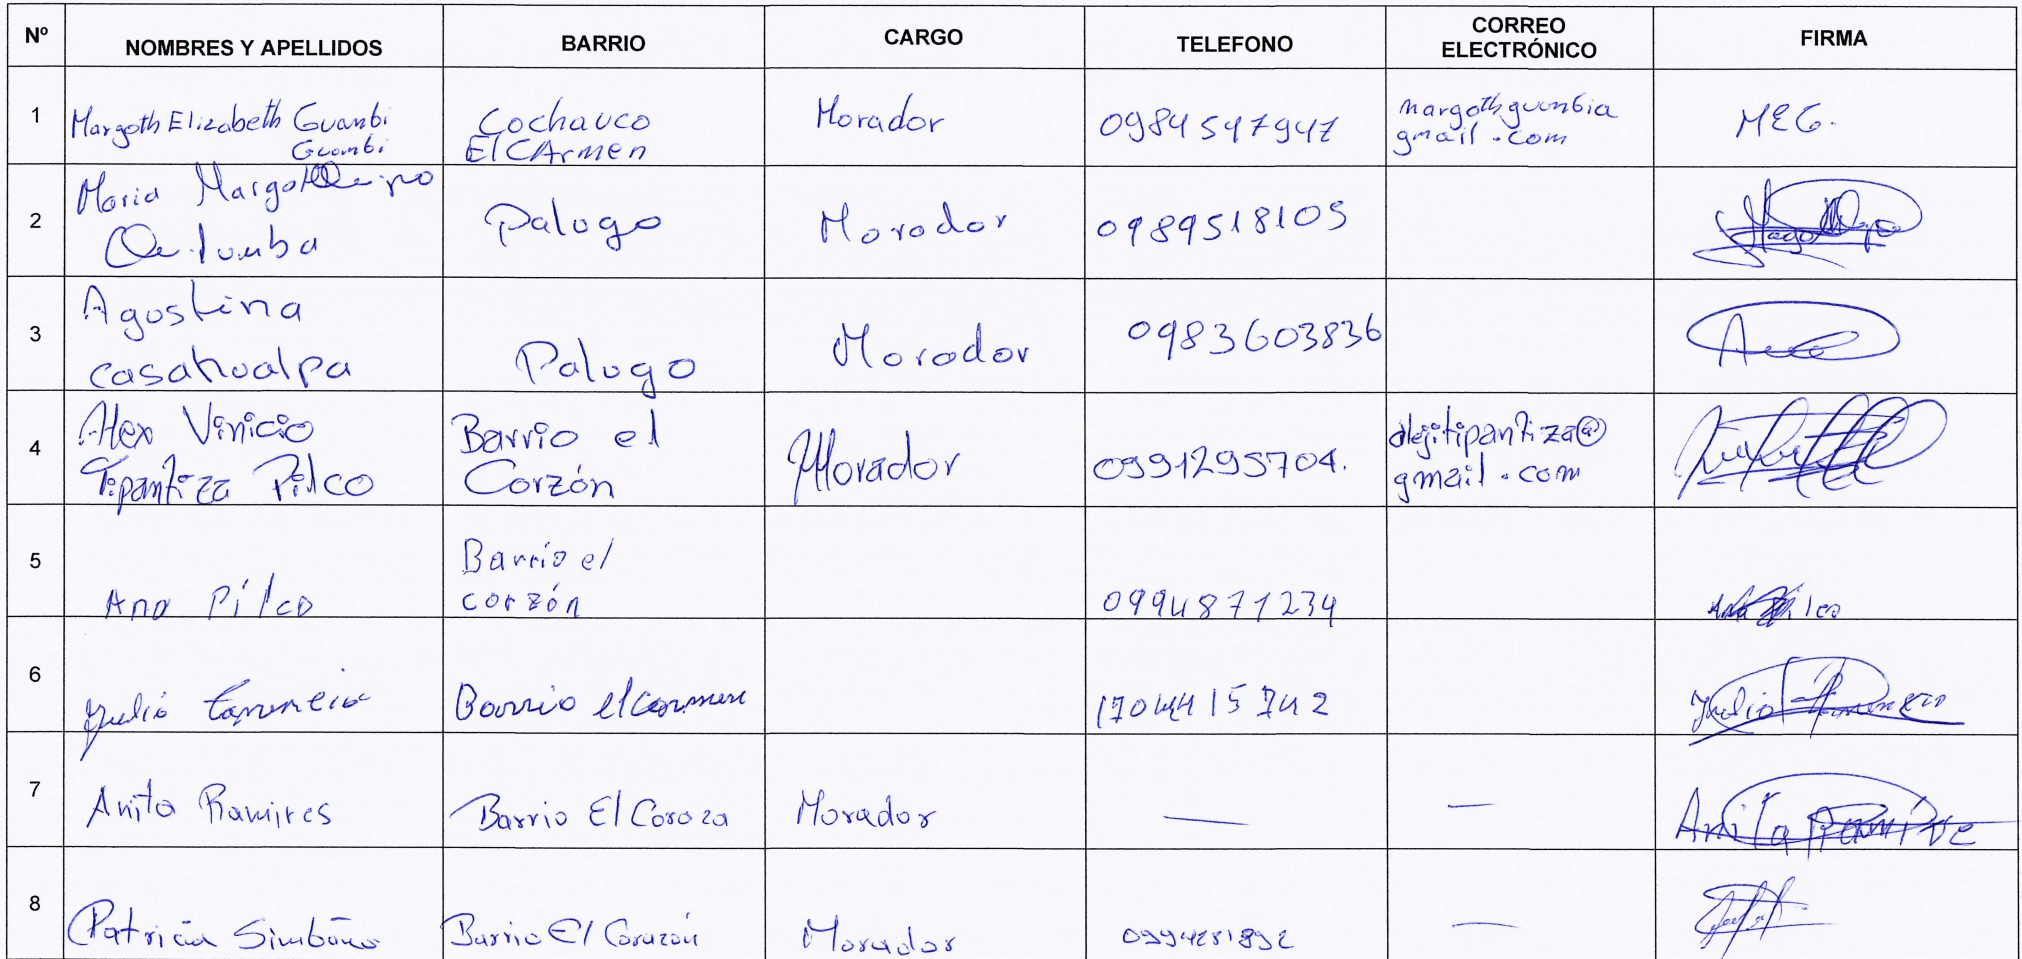 Nº NOMBRES Y APELLIDOS BARRIO CARGO TELEFONO CORREO ELECTRÓNICO FIRMA
1 Margoth Elizabeth Guambi Guambi Cochauco El CArmen Morador 0984547947 margothguambia gmail.com MEG.
2 Maria Margoth Palugo Morador 0989518105
3 Agostina casahualpa Palugo Morador 0983603836
4 Alex Vinicio Tipantiza Pilco Barrio el Corzón Morador 0991295704. alejitipantiza@ gmail.com
5 Ana Pilco Barrio el corzón 0994871234
6 Barrio el carmen 1704415742
7 Anita Ramires Barrio El Coroza Morador — — Anita
8 Patricia Simbaña Barrio El Corazón Morador —